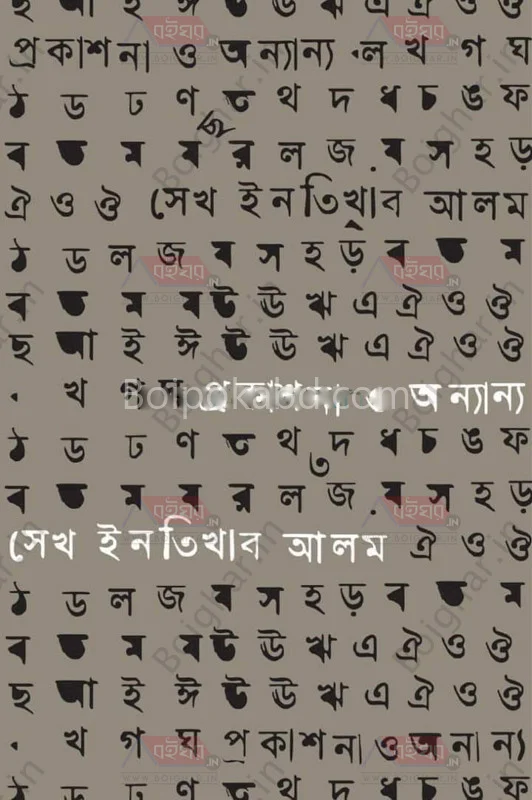 প্রকাশনা ও অন্যান্য ল খ গ ঘ
ঠ ড ঢ ণ ত থ দ ধ চ ঙ ফ
র ল জ ষ স হ ড়
ঐ ও ঔ সেখ ইনতিখাব আলম
ঠ ড ল জ ষ স হ ড় ব ভ ম
ব ভ ম ষ উ ঊ ঋ এ ঐ ও ঔ
ছ আ ই ঈ উ ঊ ঋ এ ঐ ও ঔ
খ গ ঘ প্রকাশনা ও অন্যান্য
ঠ ড ঢ ণ ত থ দ ধ চ ঙ ফ
র ল জ ষ স হ ড়
সেখ ইনতিখাব আলম ঐ ও ঔ
ঠ ড ল জ ষ স হ ড় ব ভ ম
ব ভ ম ষ উ ঊ ঋ এ ঐ ও ঔ
ছ আ ই ঈ উ ঊ ঋ এ ঐ ও ঔ
খ গ ঘ প্রকাশনা ও অন্যান্য
ঠ ড ঢ ণ ত থ দ ধ চ ঙ ফ
Boipokabd.com
বইঘর.IN
BOIGHAR.IN
Boighar.in